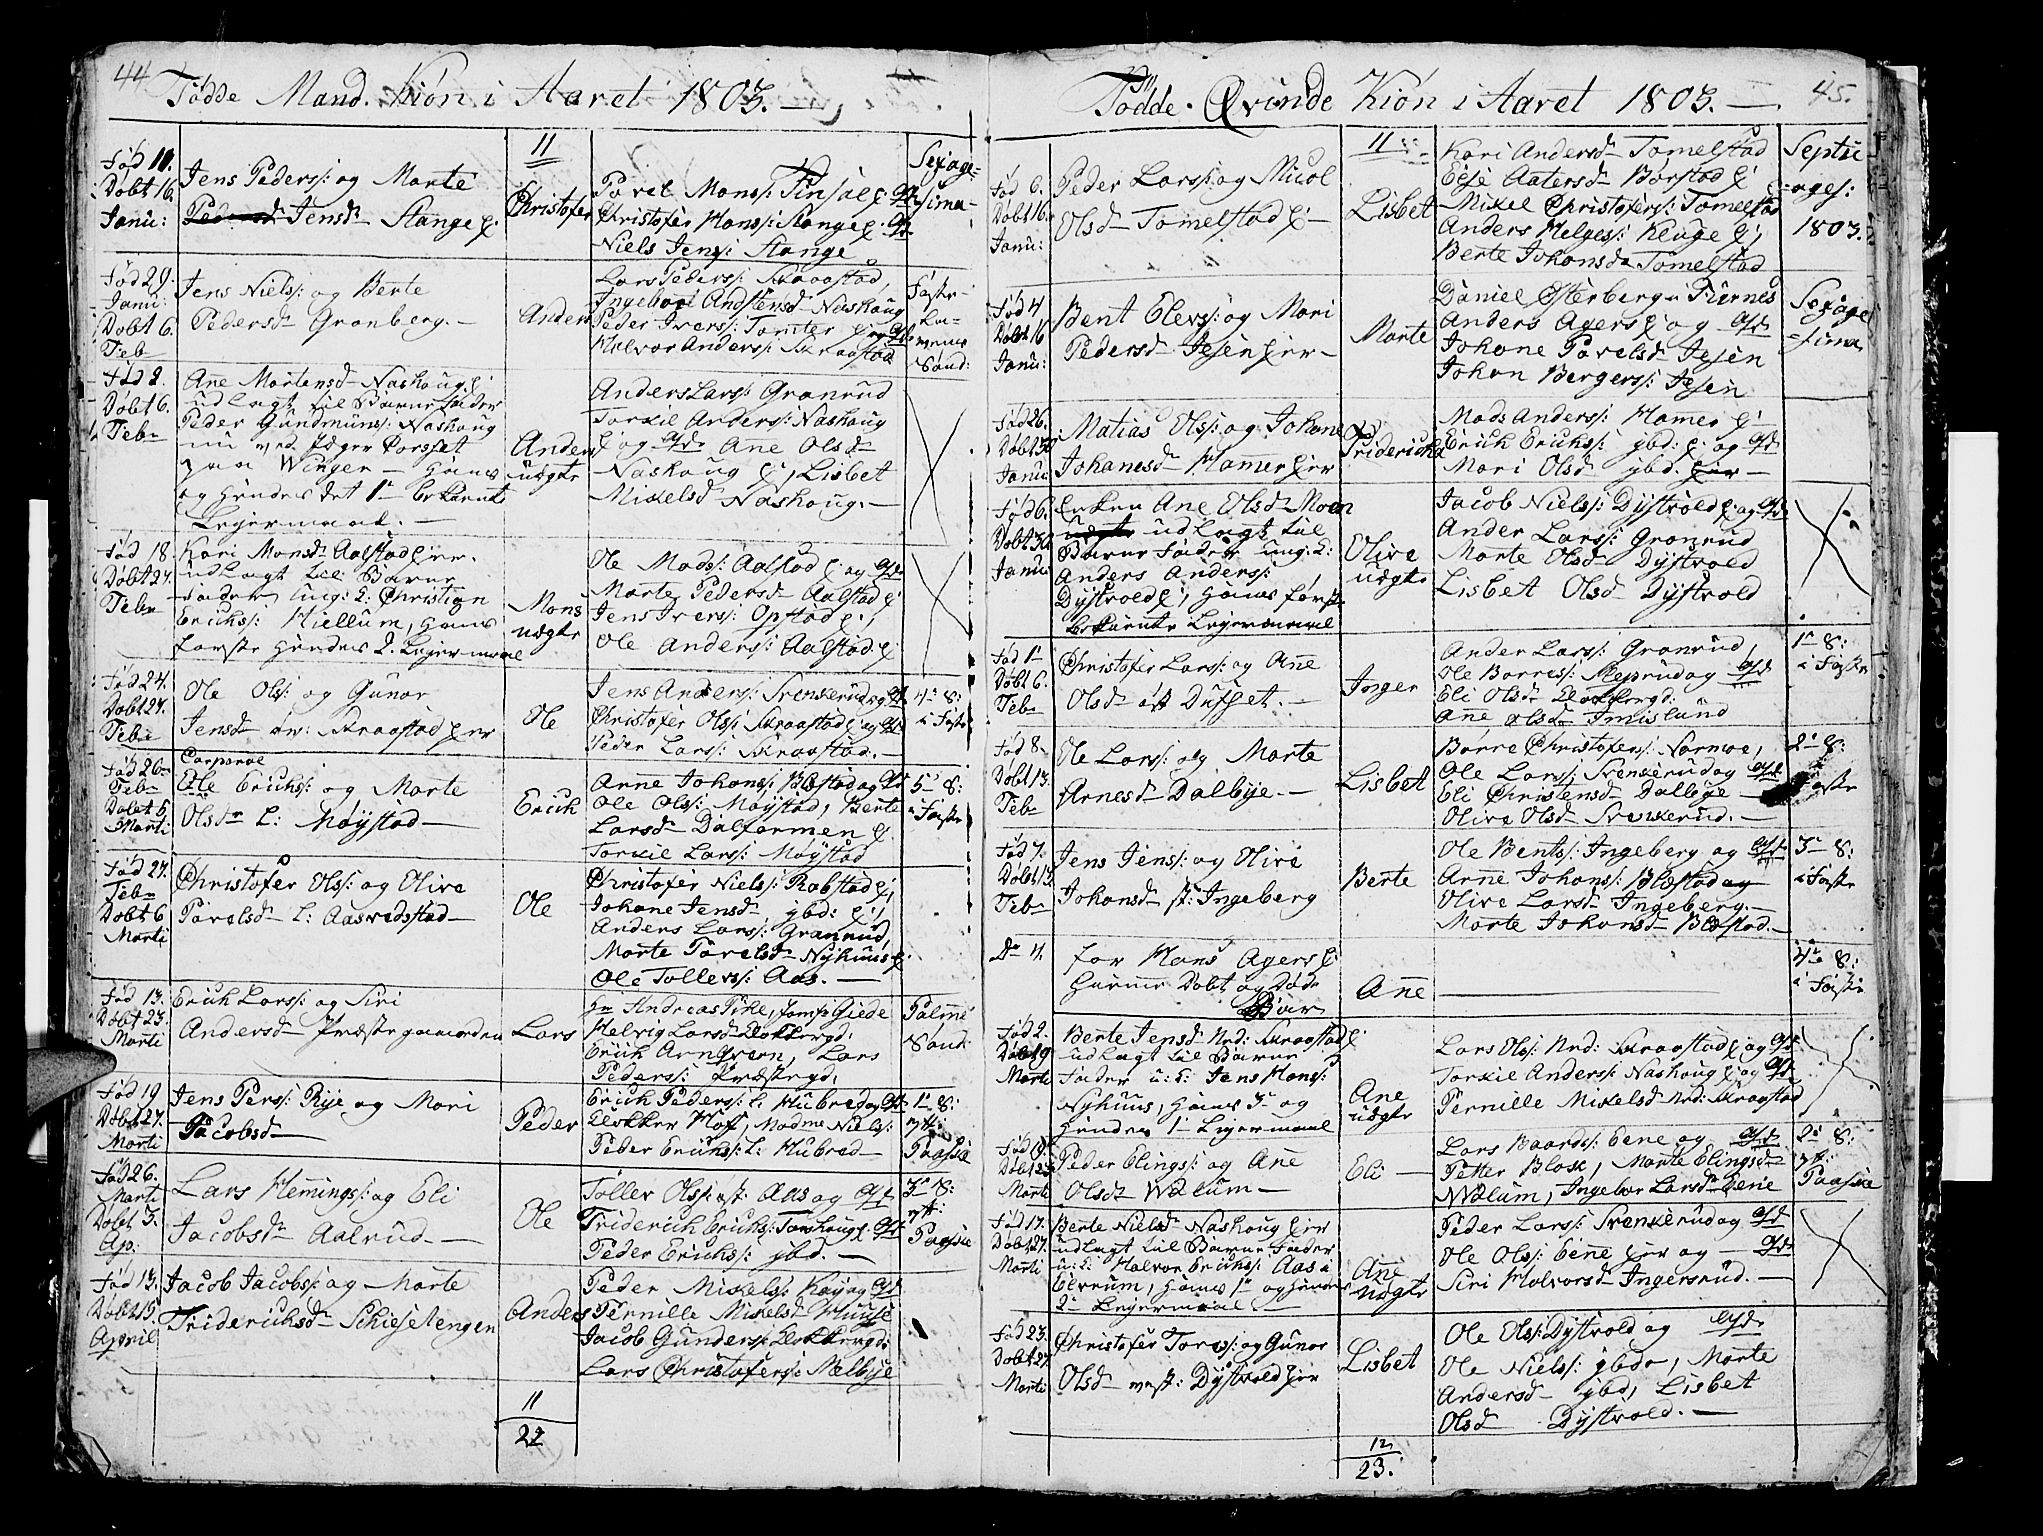 44
Fødde Mand. Kiøn i Aaret 1803. —
11
Fød 11.
Døbt 16.
Janu:
Jens Peders: og Marte
Jensd Stange
Christofer
Pavel Mons:
Christofer Hans: Stange
Niels Jens: Stange
Sexage=
sima
Fød 29.
Janu:
Døbt 6.
Feb
Jens Niels: og Berte
Pedersd Granberg. —
Anders
Lars Peders: Skraastad,
Peder Ivers: Tomter
Halvor Anders: Skraastad
Faste-
Sønd:
Fød 2.
Døbt 6.
Feb
Ane Martensd Nashoug
udlagt til Barnefader
Peder Gundmuns: Nashoug
og hendes det 1
Lejermaal. —
Anders
uægte
Anders Lars: Granrud
Torkil Anders: Nashoug
og Ane Olsd
Nashoug, Lisbet
Mikelsd Nashoug. —
Fød 18.
Døbt 27.
Feb
Kari Monsd Aalstad
udlagt til Barne
fader ung: k: Christian
Eriks: Kiellum, hans
første hendes 2. Lejermaal
Mons
uægte
Ole Mads: Aalstad
Marte Pedersd Aalstad
Jens Ivers: Opstad,
Ole Anders: Aalstad
Fød 24.
Døbt 27.
Feb
Ole Ols: og Gunor
Jensd Skraastad
Ole
Jens Anders: Svenkerud
Christofer Ols: Skraastad
Peder Lars: Skraastad. —
4 S:
i Faste
Fød 26
Feb
Døbt 6
Marti
Corporal
Ole Ericks: og Marte
Olsd L: Møystad —
Erick
Arne Johans: Blæstad
Ole Ols: Møystad, Berte
Larsd Dalfarmen
Torkil Lars: Møystad
5 S:
i Faste
Fød 27.
Feb
Døbt 6
Marti
Christofer Ols: og Olive
Pavelsd L: Aasvedstad —
Ole
Christofer Niels: Rabstad,
Johane Jensd ibd:
Anders Lars: Granrud,
Marte Pavelsd Nyhuus
Ole Tollers: Aas. —
Fød 13.
Døbt 23.
Marti
Erich Lars: og Siri
Andersd Præstegaarden
Lars
Hr Andreas Pihl, Jomf Giede
Helvig Larsd Klokkergd:
Erich Arnqvern, Lars
Peders: Præstegd:
Palme
Sønd:
Fød 19
Døbt 27.
Marti
Jens Pers: Rye og Mari
Jacobsd
Peder
Erich Peders: L: Hubred
Klokker Hof, Madme Niels:
Peder Ericks: L: Hubred —
1 S:
eft:
Paaske
Fød 26.
Marti
Døbt 3.
Ap:
Lars Hemings: og Eli
Jacobsd Aalrud. —
Ole
Toller Ols: øst: Aas og
Friderich Ericks: Tomhoug
Peder Ericks: ibd. —
3 S:
eft:
Paaske
Fød 13.
Døbt 15.
April
Jacob Jacobs: og Marte
Friderichsd Schieselengen
Anders
Peder Mikels: Kay og
Pernille Mikelsd Huuse
Jacob Gunders: Klokkergd:
Lars Christofers: Melbye
11
22
45.
Fødde Qvinde Kiøn i Aaret 1803. —
11
Fød 6.
Døbt 16.
Janu:
Peder Lars: og Nicol
Olsd Tomelstad —
Lisbet
Kari Andersd Tomelstad
Mikel Christofers: Tomelstad
Anders Helges: Kluge,
Berte Johansd Tomelstad
Septu
ages:
1803.
Fød 4
Døbt 16
Janu:
Bent Elevs: og Mari
Pedersd Jesen —
Marte
Daniel Østerberg
Anders Agers og
Johane Pavelsd Jesen
Johan Bergers: Jesen
Sexage
sima
Fød 26.
Døbt 30
Janu:
Matias Ols: og Johane
Johanesd Hamer
Friderich
Mads Anders: Hamer
Erick Ericks: ibd: og
Mari Olsd ibd.
Fød 6.
Døbt 30
Janu:
Enken Ane Olsd Moen
udlagt til
Barne Fader ung: k:
Anders Anders:
Dystvold, hans første
Lejermaal
Olive
uægte
Jacob Niels: Dystvold og
Ander Lars: Granrud
Marte Olsd Dystvold
Lisbet Olsd Dystvold
Fød 1
Døbt 6.
Feb
Christofer Lars: og Ane
Olsd øst Duset. —
Inger
Ander Lars: Granrud,
Ole Børres: og
Eli Olsd Klokkergd:
Ane Olsd Imislund
1 S:
i Faste
Fød 8
Døbt 13.
Feb
Ole Lars: og Marte
Arnesd Dalbye. —
Lisbet
Børre Christofers: Narmoe,
Ole Lars: Svenkerud og
Eli Christensd Dalbye
Olive Olsd Svenkerud. —
2 S:
Faste
Fød 7.
Døbt 13
Feb
Jens Jens: og Olive
Johansd st: Ingeberg
Berte
Ole Bents: Ingeberg og
Arne Johans: Blæstad og
Olive Larsd Ingeberg. —
Marte Johansd Blæstad. —
3 S:
i Faste
for Hans Agers
hieme Døbt og Død
Barn
Ane
4 S:
i Faste
Fød 2.
Døbt 9
Marti
Berte Jensd Nrd: Skraastad
udlagt til Barne
Fader u: k: Jens Hans:
Nyhuus, hans 3 og
hendes 1 Lejermaal
Ane
uægte
Lars Ols: Nrd: Skraastad og
Torkil Anders: Nashoug og
Pernille Mikelsd Nrd: Skraastad
Peder Elings: og Ane
Olsd Wælum —
Eli —
Lars Baards: Eene og
Petter Blok, Marte Elingsd
Wælum, Ingebor Larsd Eene
2 S:
eft:
Paaske
Fød 17.
Døbt 27.
Marti
Berte Nielsd Nashoug
udlagt til Barne Fader
u: k: Halvor Ericks: Aas i
Elverum, hans 1 og hendes
2 Lejermaal
Ane
uægte
Peder Lars: Svenkerud og
Ole Ols: Eene og
Siri Halvorsd Ingersrud. —
Fød 23.
Døbt 27.
Marti
Christofer Tores: og Gunor
Olsd vest: Dystvold
Lisbet
Ole Ols: Dystvold og
Ole Niels: ibd, Marte
Andersd ibd, Lisbet
Olsd Dystvold. —
12
23.